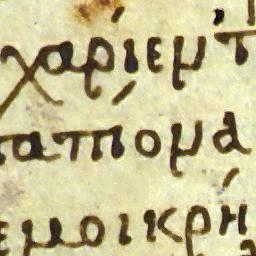 χαρίεμ᾽τ
ταπίομα
εμοικρή